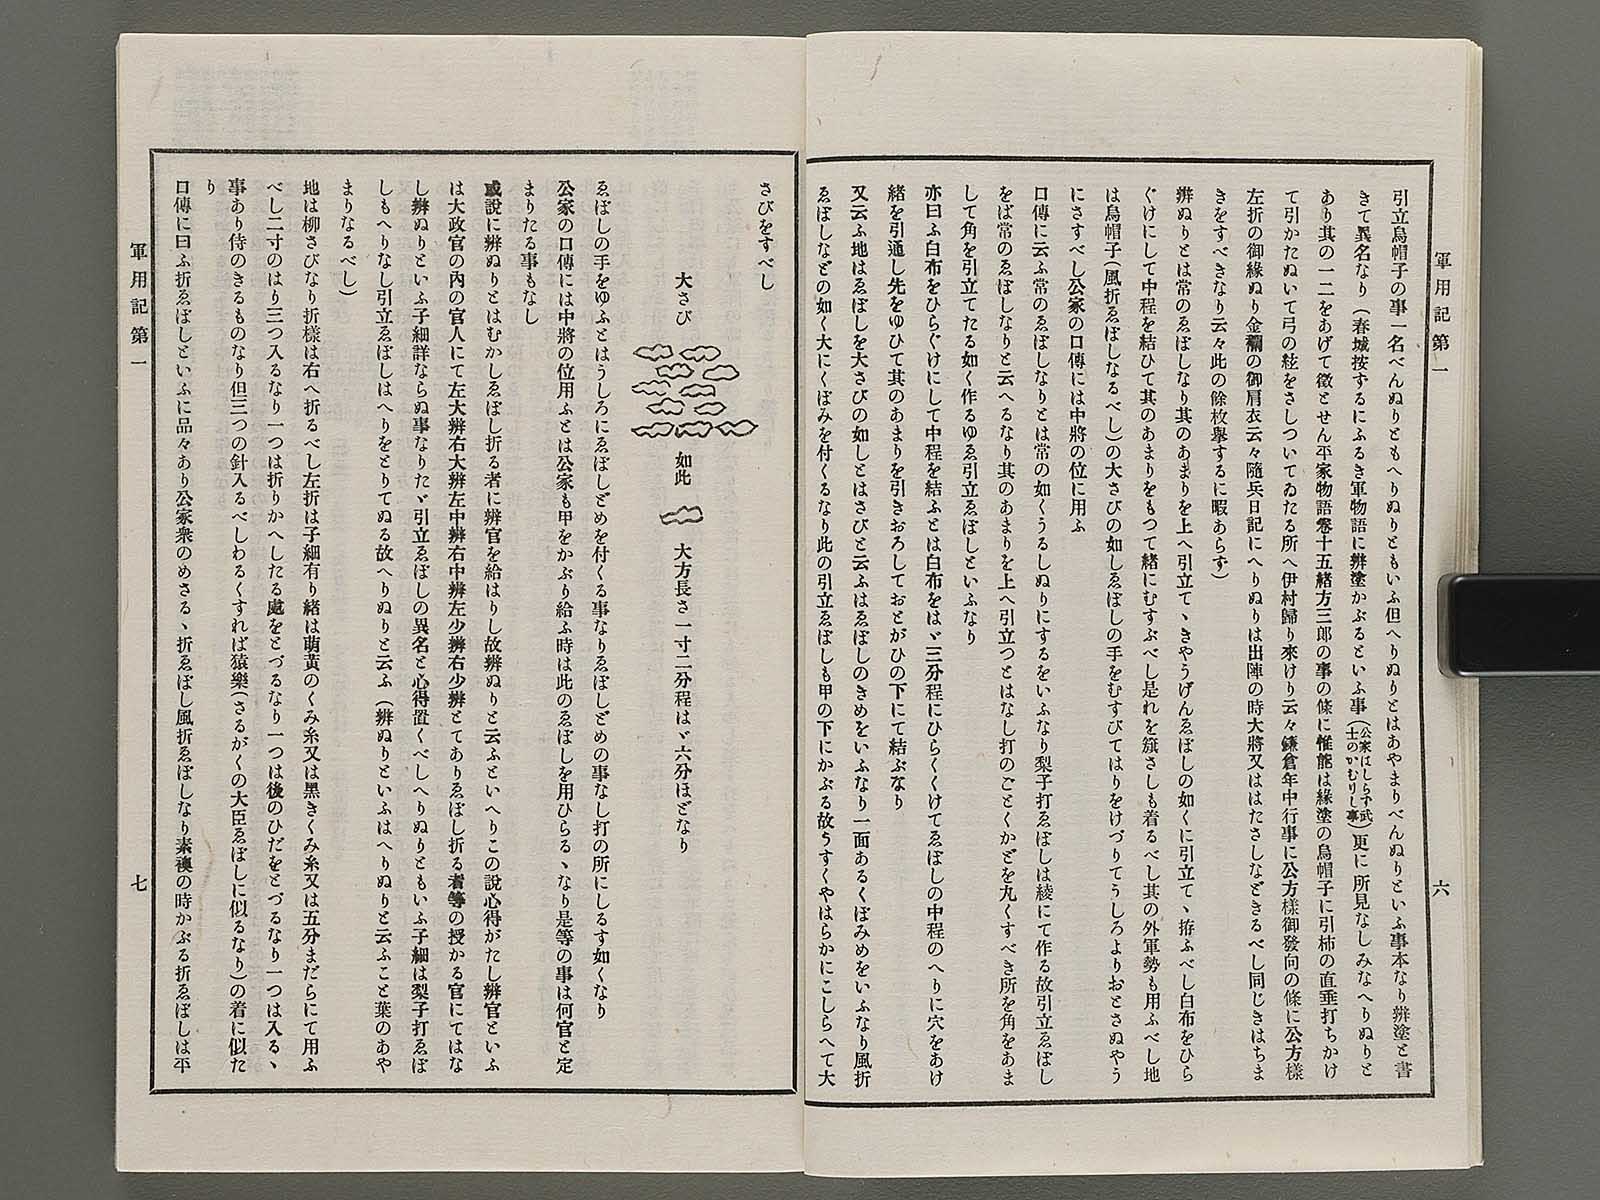 軍用記第一
六
引立烏帽子の事一名べんぬりともへりぬりともいふ但へりぬりとはあやまりべんぬりといふ事本なり辨塗と書
きて異名なり（春城按ずるにふるき軍物語に辨塗かぶるといふ事（公家はしらず武士のかむりし事）更に所見なしみなへりぬりと
あり其の一二をあげて徵とせん平家物語卷十五緖方三郞の事の條に惟能は緣塗の烏帽子に引柿の直垂打ちかけ
て引かたぬいて弓の絃をさしついてゐたる所へ伊村歸り來けり云々鎌倉年中行事に公方樣御發向の條に公方樣
左折の御緣ぬり金襴の御肩衣云々隨兵日記にへりぬりは出陣の時大將又ははたさしなどきるべし同じきはちま
きをすべきなり云々此の餘枚擧するに暇あらず）
辨ぬりとは常のゑぼしなり其のあまりを上へ引立てヽきやうげんゑぼしの如くに引立てヽ拵ふべし白布をひら
ぐけにして中程を結ひて其のあまりをもつて緖にむすぶべし是れを籏さしも着るべし其の外軍勢も用ふべし地
は烏帽子（風折ゑぼしなるべし）の大さびの如しゑぼしの手をむすびてはりをけづりてうしろよりおとさぬやう
にさすべし公家の口傳には中將の位に用ふ
口傳に云ふ常のゑぼしなりとは常の如くうるしぬりにするをいふなり梨子打ゑぼしは綾にて作る故引立ゑぼし
をば常のゑぼしなりと云へるなり其のあまりを上へ引立つとはなし打のごとくかどを丸くすべき所を角をあま
して角を引立てたる如く作るゆゑ引立ゑぼしといふなり
亦曰ふ白布をひらぐけにして中程を結ふとは白布をはヾ三分程にひらくくけてゑぼしの中程のへりに穴をあけ
緖を引通し先をゆひて其のあまりを引きおろしておとがひの下にて結ぶなり
又云ふ地はゑぼしを大さびの如しとはさびと云ふはゑぼしのきめをいふなり一面あるくぼみめをいふなり風折
ゑぼしなどの如く大にくぼみを付くるなり此の引立ゑぼしも甲の下にかぶる故うすくやはらかにこしらへて大
さびをすべし
大さび
如此
大方長さ一寸二分程はヾ六分ほどなり
ゑぼしの手をゆふとはうしろにゑぼしどめを付くる事なりゑぼしどめの事なし打の所にしるす如くなり
公家の口傳には中將の位用ふとは公家も甲をかぶり給ふ時は此のゑぼしを用ひらるヽなり是等の事は何官と定
まりたる事もなし
或說に辨ぬりとはむかしゑぼし折る者に辨官を給はりし故辨ぬりと云ふといへりこの說心得がたし辨官といふ
は大政官の內の官人にて左大辨右大辨左中辨右中辨左少辨右少辨とてありゑぼし折る者等の授かる官にてはな
し辨ぬりといふ子細詳ならぬ事なりたヾ引立ゑぼしの異名と心得置くべしへりぬりともいふ子細は梨子打ゑぼ
しもへりなし引立ゑぼしはへりをとりてぬる故へりぬりと云ふ（辨ぬりといふはへりぬりと云ふこと葉のあや
まりなるべし）
地は柳さびなり折樣は右へ折るべし左折は子細有り緖は萠黃のくみ糸又は黑きくみ糸又は五分まだらにて用ふ
べし二寸のはり三つ入るなり一つは折りかへしたる處をとづるなり一つは後のひだをとづるなり一つは入るヽ
事あり侍のきるものなり但三つの針入るべしわるくすれば猿樂（さるがくの大臣ゑぼしに似るなり）の着に似た
り
口傳に曰ふ折ゑぼしといふに品々あり公家衆のめさるヽ折ゑぼし風折ゑぼしなり素襖の時かぶる折ゑぼしは平
軍用記第一
七